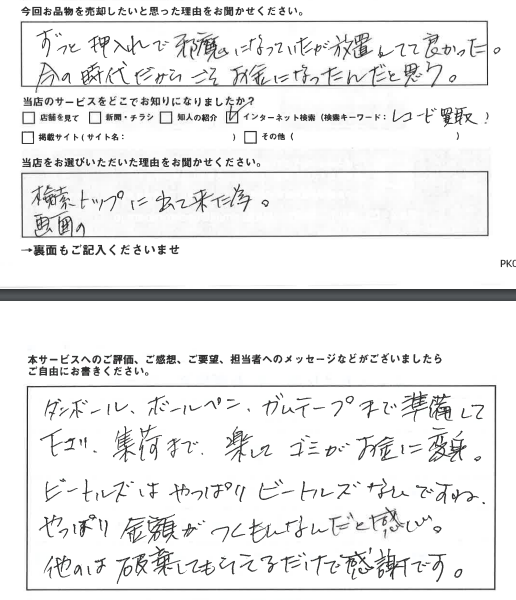 今回お品物を売却したいと思った理由をお聞かせください。
ずっと押入れで邪魔になっていたが放置してて良かった。
今の時代だからこそお金になったんだと思う。
当店のサービスをどこでお知りになりましたか？
□ 店舗を見て □ 新聞・チラシ □ 知人の紹介 ☑ インターネット検索（検索キーワード：レコード買取）
□ 掲載サイト（サイト名： ） □ その他（ ）
当店をお選びいただいた理由をお聞かせください。
検索トップに出て来た為。
画面の
→裏面もご記入くださいませ
PK
本サービスへのご評価、ご感想、ご要望、担当者へのメッセージなどがございましたら
ご自由にお書きください。
ダンボール、ボールペン、ガムテープまで準備して
下さり、集荷まで、楽してゴミがお金に変身。
ビートルズはやっぱりビートルズなんですね、
やっぱり金額がつくもんなんだと感じ。
他のは破棄してもらえるだけで感謝です。